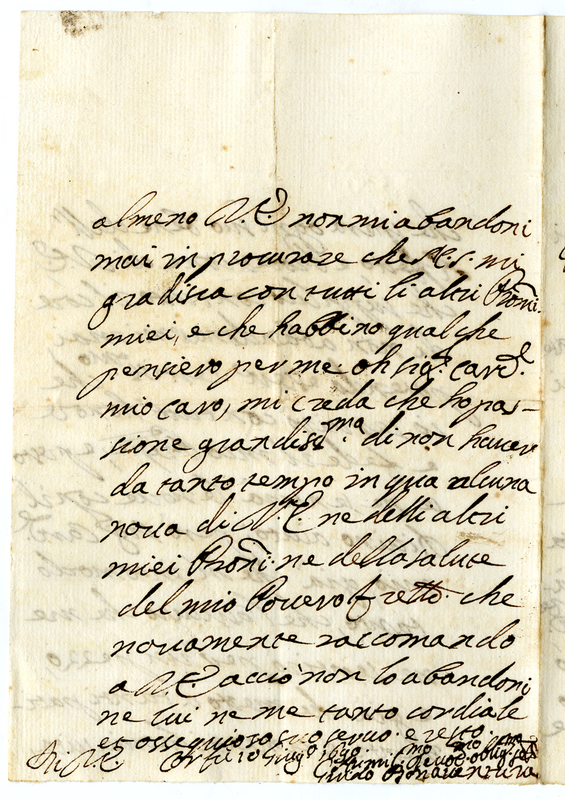 almeno V. E. non mi abandoni
mai in procurare che S. S. mi
gradisca con tutti li altri Proni.
miei, e che habbino qualche
pensiero per me. oh sigr. card.le
mio caro, mi creda che ho pas-
sione grandissma. di non haver
da tanto tempo in qua alcuna
nova di V. E. ne delli altri
miei Proni. ne della salute
del mio Povero frettō. che
novamente raccomando
a V. E. acciò non lo abandoni
ne lui ne me tanto cordiale
et ossequioso suo servo. e resto
Di V. E.
Humil.mo Devo.mo Oblig.mo
Guido Bonaventura